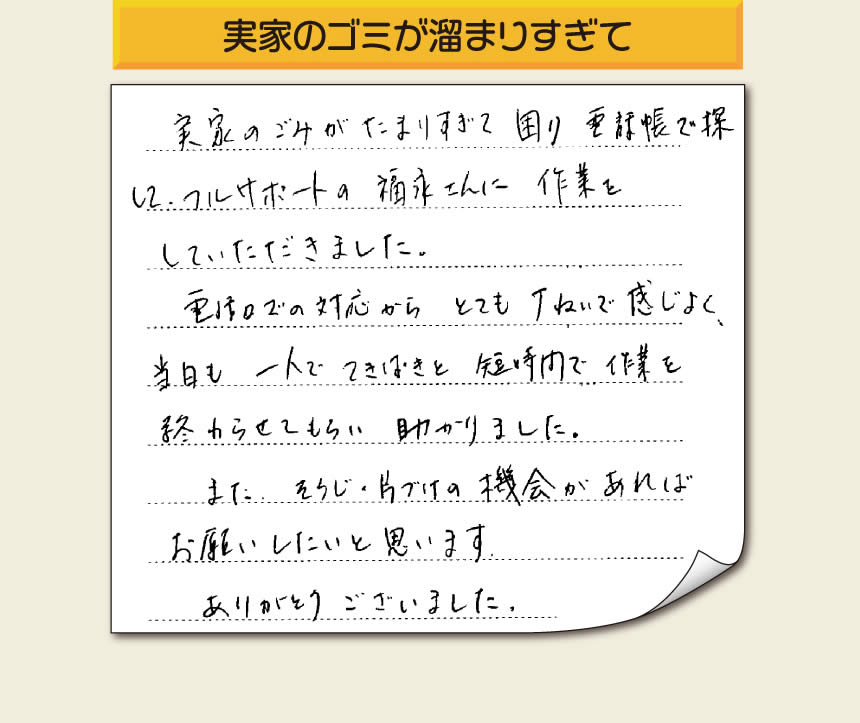 実家のゴミが溜まりすぎて
実家のごみがたまりすぎて 困り 電話帳で探
して、フルサポートの 福永さんに 作業を
していただきました。
電話口での対応から とても丁ねいで感じよく、
当日も 一人で てきぱきと 短時間で 作業を
終わらせてもらい 助かりました。
また、そうじ・片づけの機会があれば
お願いしたいと思います。
ありがとうございました。